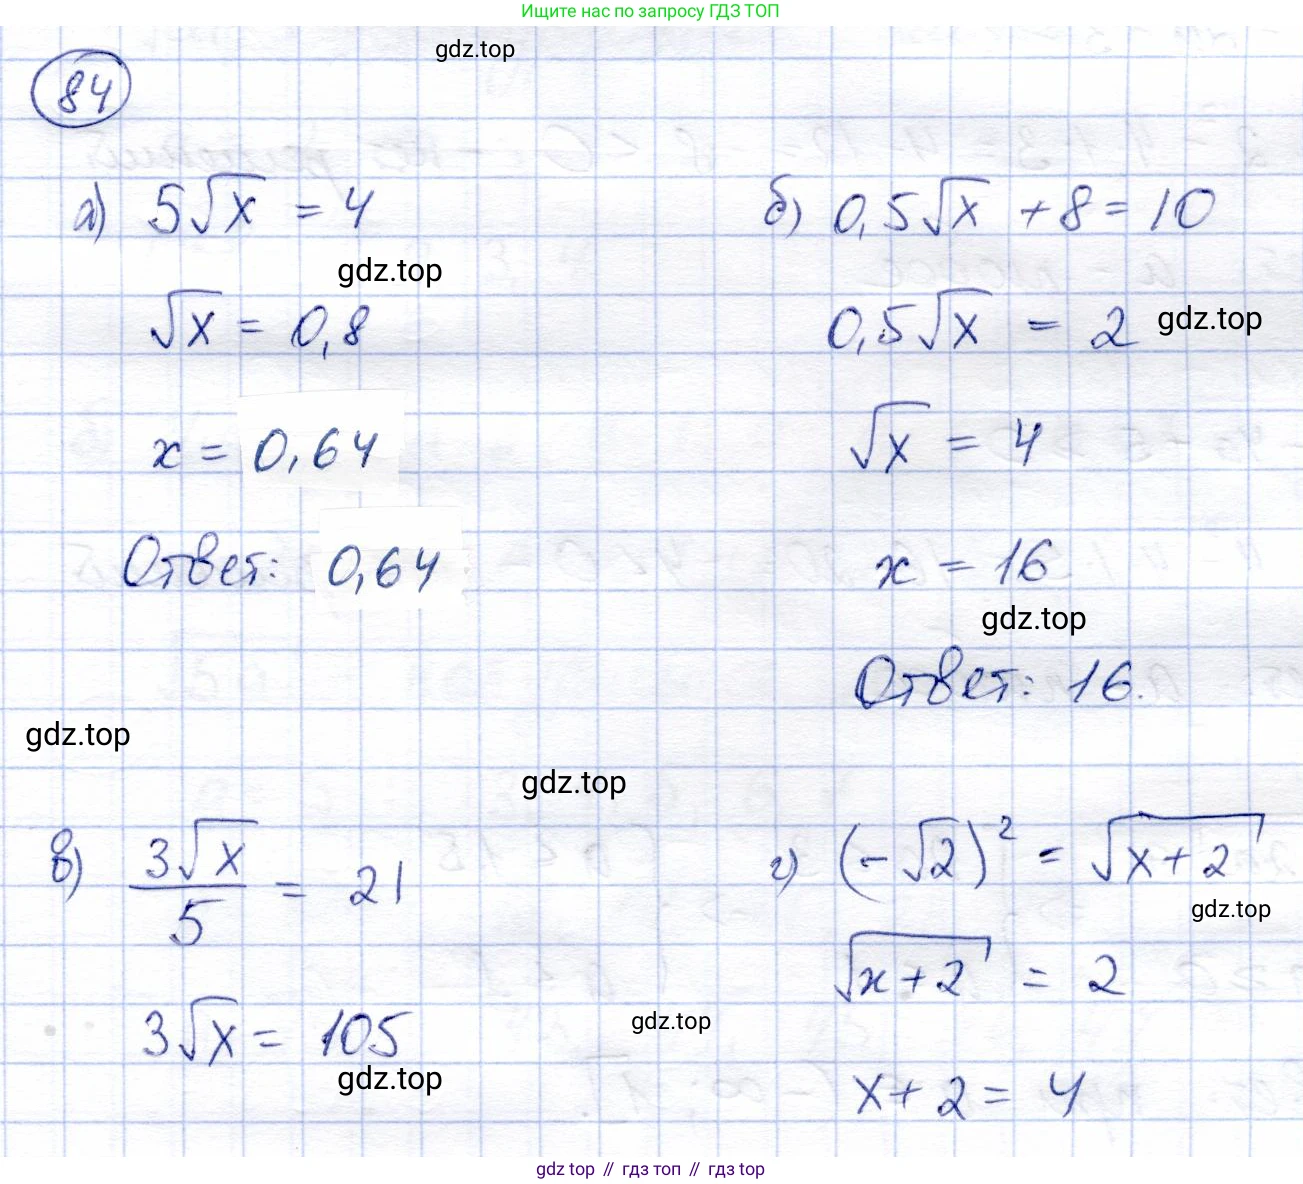 Ищите нас по запросу ГДЗ ТОП
gdz.top
84
а) 5√x = 4
gdz.top
√x = 0,8
x = 0,64
Ответ: 0,64
б) 0,5√x + 8 = 10
0,5√x = 2
gdz.top
√x = 4
x = 16
gdz.top
Ответ: 16.
gdz.top
gdz.top
в) 3√x / 5 = 21
3√x = 105
gdz.top
gdz.top
г) (-√2)² = √x+2
gdz.top
√x+2 = 2
x + 2 = 4
gdz top // гдз топ // гдз top